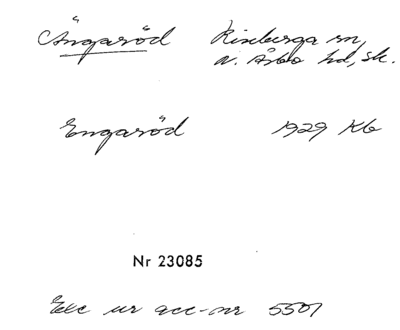 Ängaröd Riseberga sn,
N. Åsbo hd, Sk.
Engaröd 1929 Kb
Nr 23085
Exc ur acc-nr 5501